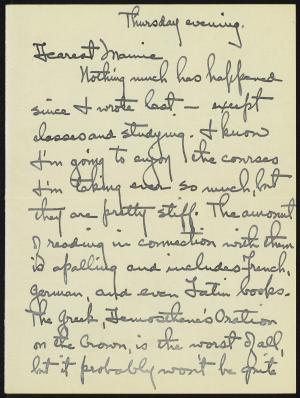 Thursday evening.
Dearest Mamie
Nothing much has happened
since I wrote last — except
classes and studying. I know
I'm going to enjoy the courses
I'm taking ever so much, but
they are pretty stiff. The amount
of reading in connection with them
is apalling and includes French,
German, and even Latin books.
The Greek, Demosthene's Oration
on the Crown, is the worst of all,
but it probably won't be quite